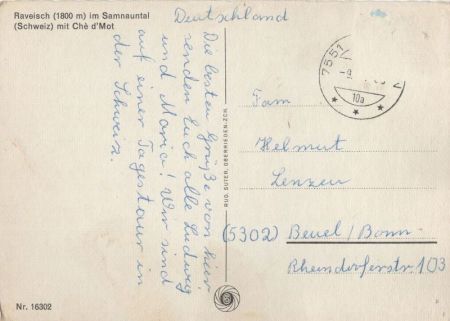 Raveisch (1800 m) im Samnauntal
(Schweiz) mit Chè d'Mot
Deutschland
Die besten Grüße von hier
senden Euch alle Ludwig
und Maria! Wir sind
auf einer Tagestour in
der Schweiz.
RUD. SUTER, OBERRIEDEN-ZCH.
7551
-9.
10a
Fam
Helmut
Lenzen
(5302) Beuel/Bonn
Rheindorferstr 103
Nr. 16302